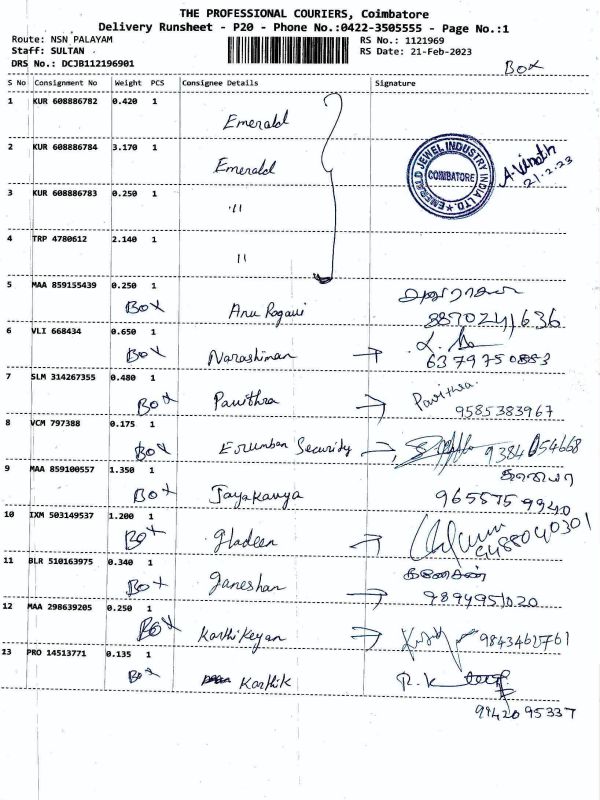 THE PROFESSIONAL COURIERS, Coimbatore
Delivery Runsheet - P20 - Phone No.:0422-3505555 - Page No.:1
Route: NSN PALAYAM
RS No.: 1121969
Staff: SULTAN
RS Date: 21-Feb-2023
DRS No.: DCJB112196901
Box
S No Consignment No Weight PCS Consignee Details Signature
1 KUR 608886782 0.420 1
Emerald
2 KUR 608886784 3.170 1
Emerald
EMERALD JEWEL INDUSTRY INDIA LTD.
COIMBATORE
A. Vinoth
21.2.23
3 KUR 608886783 0.250 1
"
4 TRP 4780612 2.140 1
"
5 MAA 859155439 0.250 1
BOX Anu Ragavi
8870241636
6 VLI 668434 0.650 1
BOX Narashiman
6379750883
7 SLM 314267355 0.480 1
BOX Pavithra Pavithra
9585383967
8 VCM 797388 0.175 1
BOX Erumban Security 9384054668
9 MAA 859100557 1.350 1
BOX Jayakavya
9655759940
10 IXM 503149537 1.200 1
BOX Gladeen
9488040301
11 BLR 510163975 0.340 1
BOX Ganeshan கணேசன்
9894951020
12 MAA 298639205 0.250 1
BOX Karthikeyan
13 PRO 14513771 0.135 1
BOX Karthik R.K
9442095337